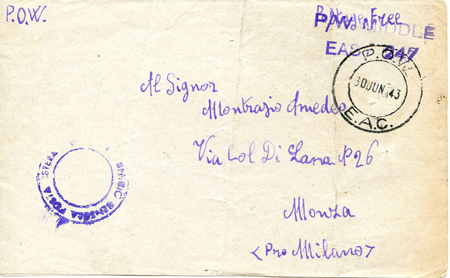 P.O.W.
Postage Free
P.W. MIDDLE
EAST 247
P.O.W.
30 JUN 43
E.A.C.
Al Signor
Montrasio Amedeo
Via Col Di Lana N° 26
Monza
(Pro Milano)
POSTA ESTERA